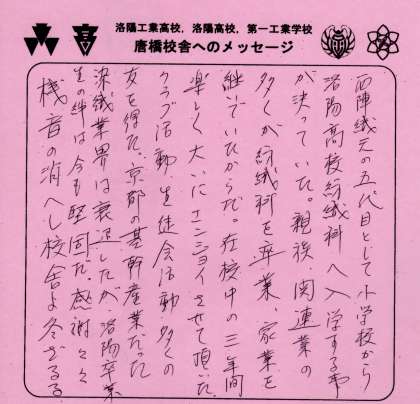 洛陽工業高校，洛陽高校，第一工業学校
唐橋校舎へのメッセージ
西陣織元の五代目として小学校から
洛陽高校紡織科へ入学する事
が決っていた。親族、関連業の
多くが紡織科を卒業、家業を
継いでいたからだ。在校中の三年間
楽しく大いにエンジョイさせて頂いた
クラブ活動、生徒会活動多くの
友を得た。京都の基幹産業だった
染織業界は衰退したが、洛陽卒業
生の絆は今も堅固だ。感謝々々
機音の消へし校舎よ冬ざるる